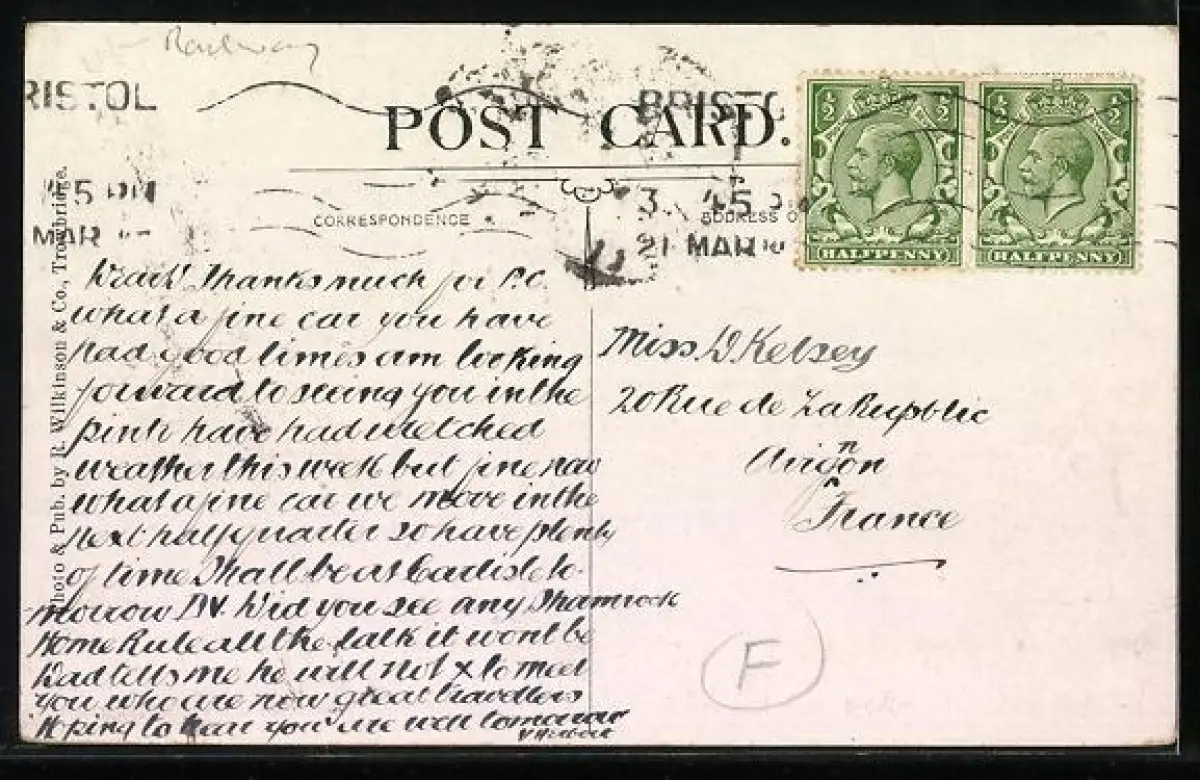 Railway
RISTOL
BRISTO
POST CARD.
½ ½ ½ ½
45 PM
3 45 P
CORRESPONDENCE
ADDRESS O
MAR
21 MAR
HALFPENNY HALFPENNY
Photo & Pub. by R. Wilkinson & Co., Trowbridge.
Thanks much for P.C.
what a fine car you have
had good times am looking
forward to seeing you in the
pink have had wretched
weather this week but fine now
what a fine car we move in the
next half quarter so have plenty
of time Shall be at Carlisle to-
morrow DV. Did you see any Shamrock
Home Rule all the talk it wont be
Dad tells me he will not x to meet
you who are now great travellers
Hoping to hear you are well tomorrow
Miss D. Kelsey
20 Rue de La Rupblic
Avigon
n
^
France
F